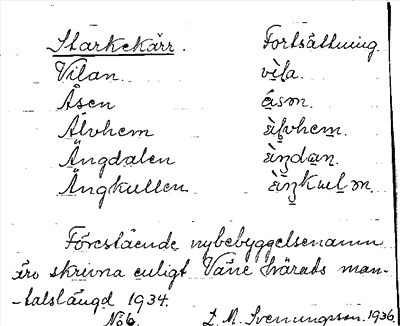 Starkekärr. Fortsättning.
Vilan. vìla.
Åsen ásɘn.
Älvhem ὲḷvhem.
Ängdalen ὲŋdaṇ.
Ängkullen ὲŋkuḷɘn.
Förestående nybebyggelsenamn
äro skrivna enligt Väne härads man-
-talslängd 1934.
No 6. L. M. Svenungson. 1936.